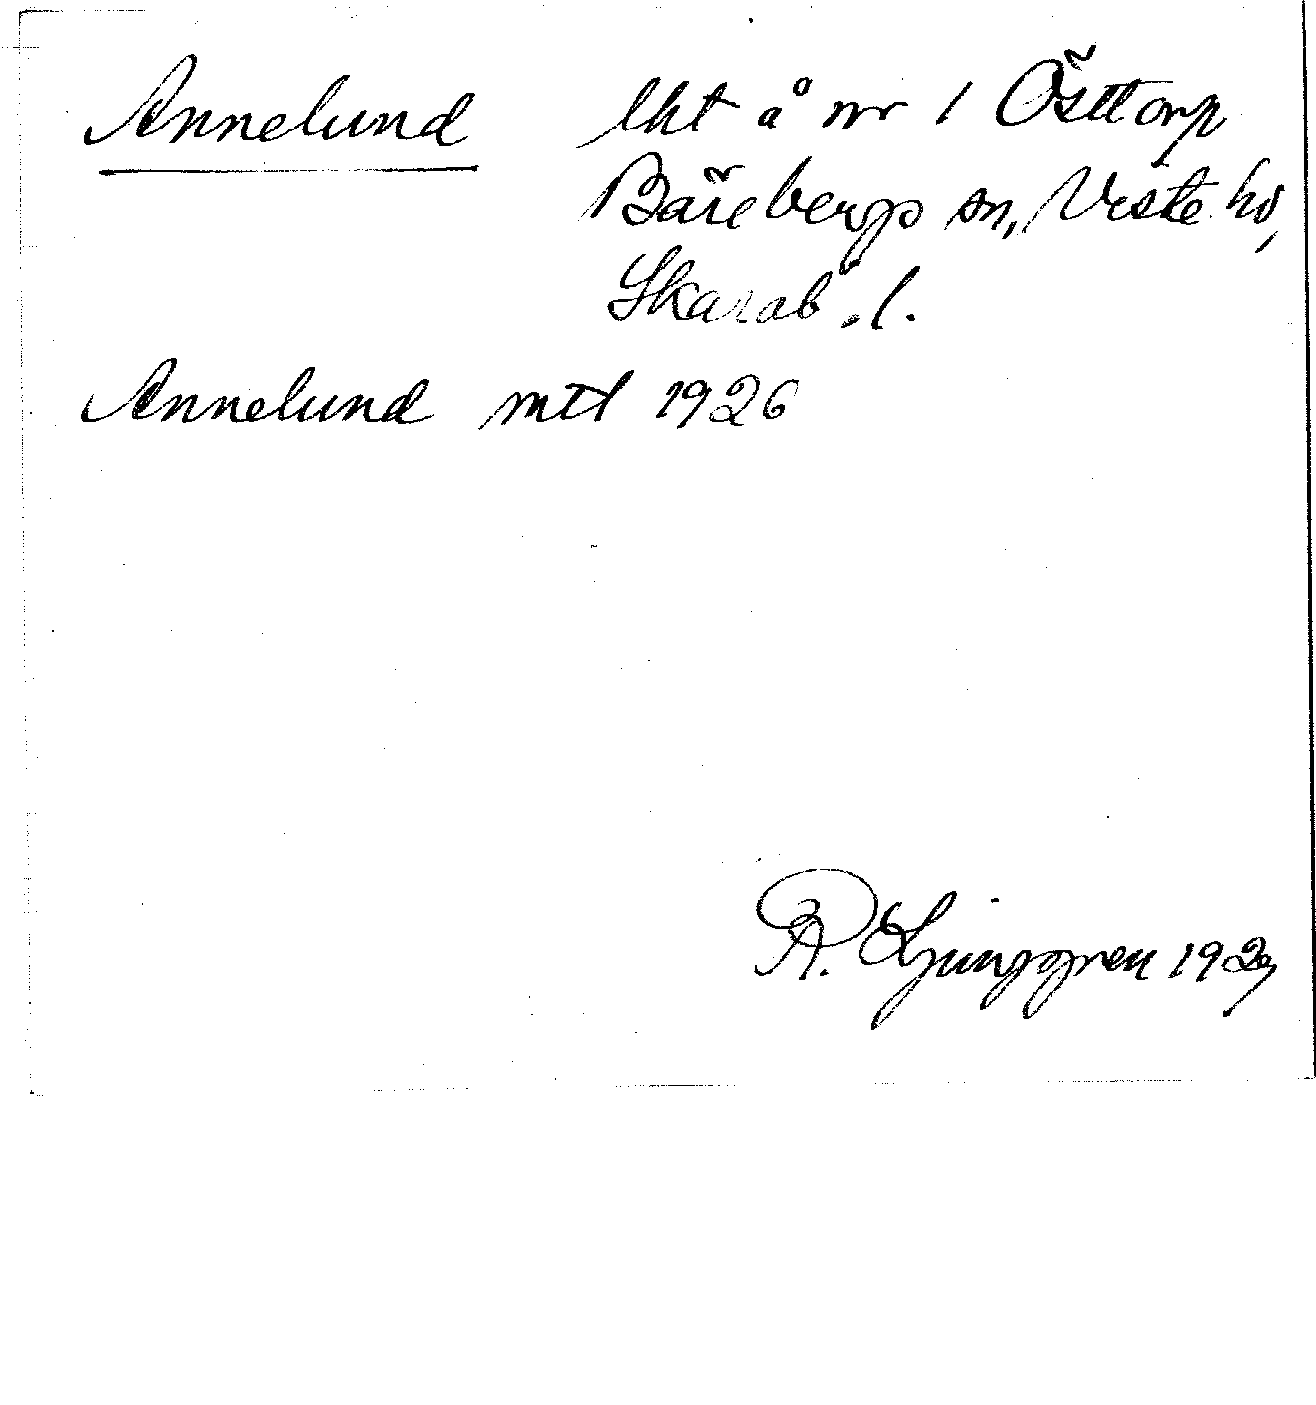 Annelund lht å nr 1 Östtorp
Bärebergs sn, Viste hd,
Skarab. l.
Annelund mtl 1926
R. Ljunggren 1929